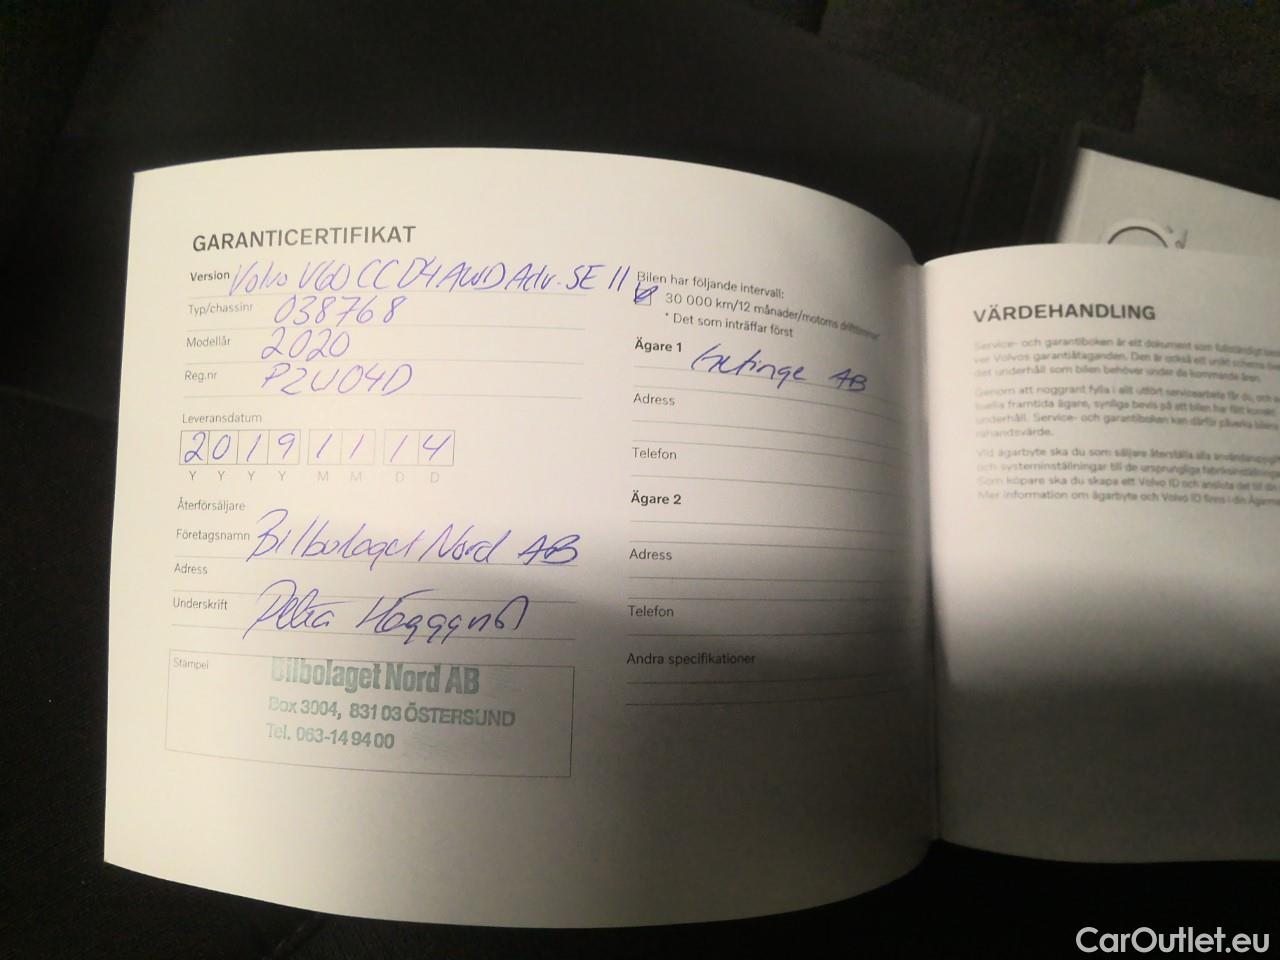 GARANTICERTIFIKAT
Version Volvo V60 CC D4 AWD Adv. SE II
Typ/chassinr 038768
Modellår 2020
Reg.nr PZU04D
Leveransdatum
2 0 1 9 1 1 1 4
Y Y Y Y M M D D
Återförsäljare
Företagsnamn Bilbolaget Nord AB
Adress
Underskrift Petra
Stämpel
Bilbolaget Nord AB
Box 3004, 831 03 ÖSTERSUND
Tel. 063-14 94 00
Bilen har följande intervall:
30 000 km/12 månader/motorns drifttimmar*
* Det som inträffar först
Ägare 1 Getinge AB
Adress
Telefon
Ägare 2
Adress
Telefon
Andra specifikationer
VÄRDEHANDLING
Service- och garantiboken är ett dokument som fullständigt
ver Volvos garantiåtaganden. Den är också ett unikt schema
det underhåll som bilen behöver under de kommande åren.
Genom att noggrant fylla i allt utfört servicearbete får du, och
tuella framtida ägare, synliga bevis på att bilen har fått korrekt
underhåll. Service- och garantiboken kan därför påverka bilens
rahandsvärde.
Vid ägarbyte ska du som säljare återställa alla
och systeminställningar till de ursprungliga
Som köpare ska du skapa ett Volvo ID och ansluta det till
Mer information om ägarbyte och Volvo ID finns i din
CarOutlet.eu